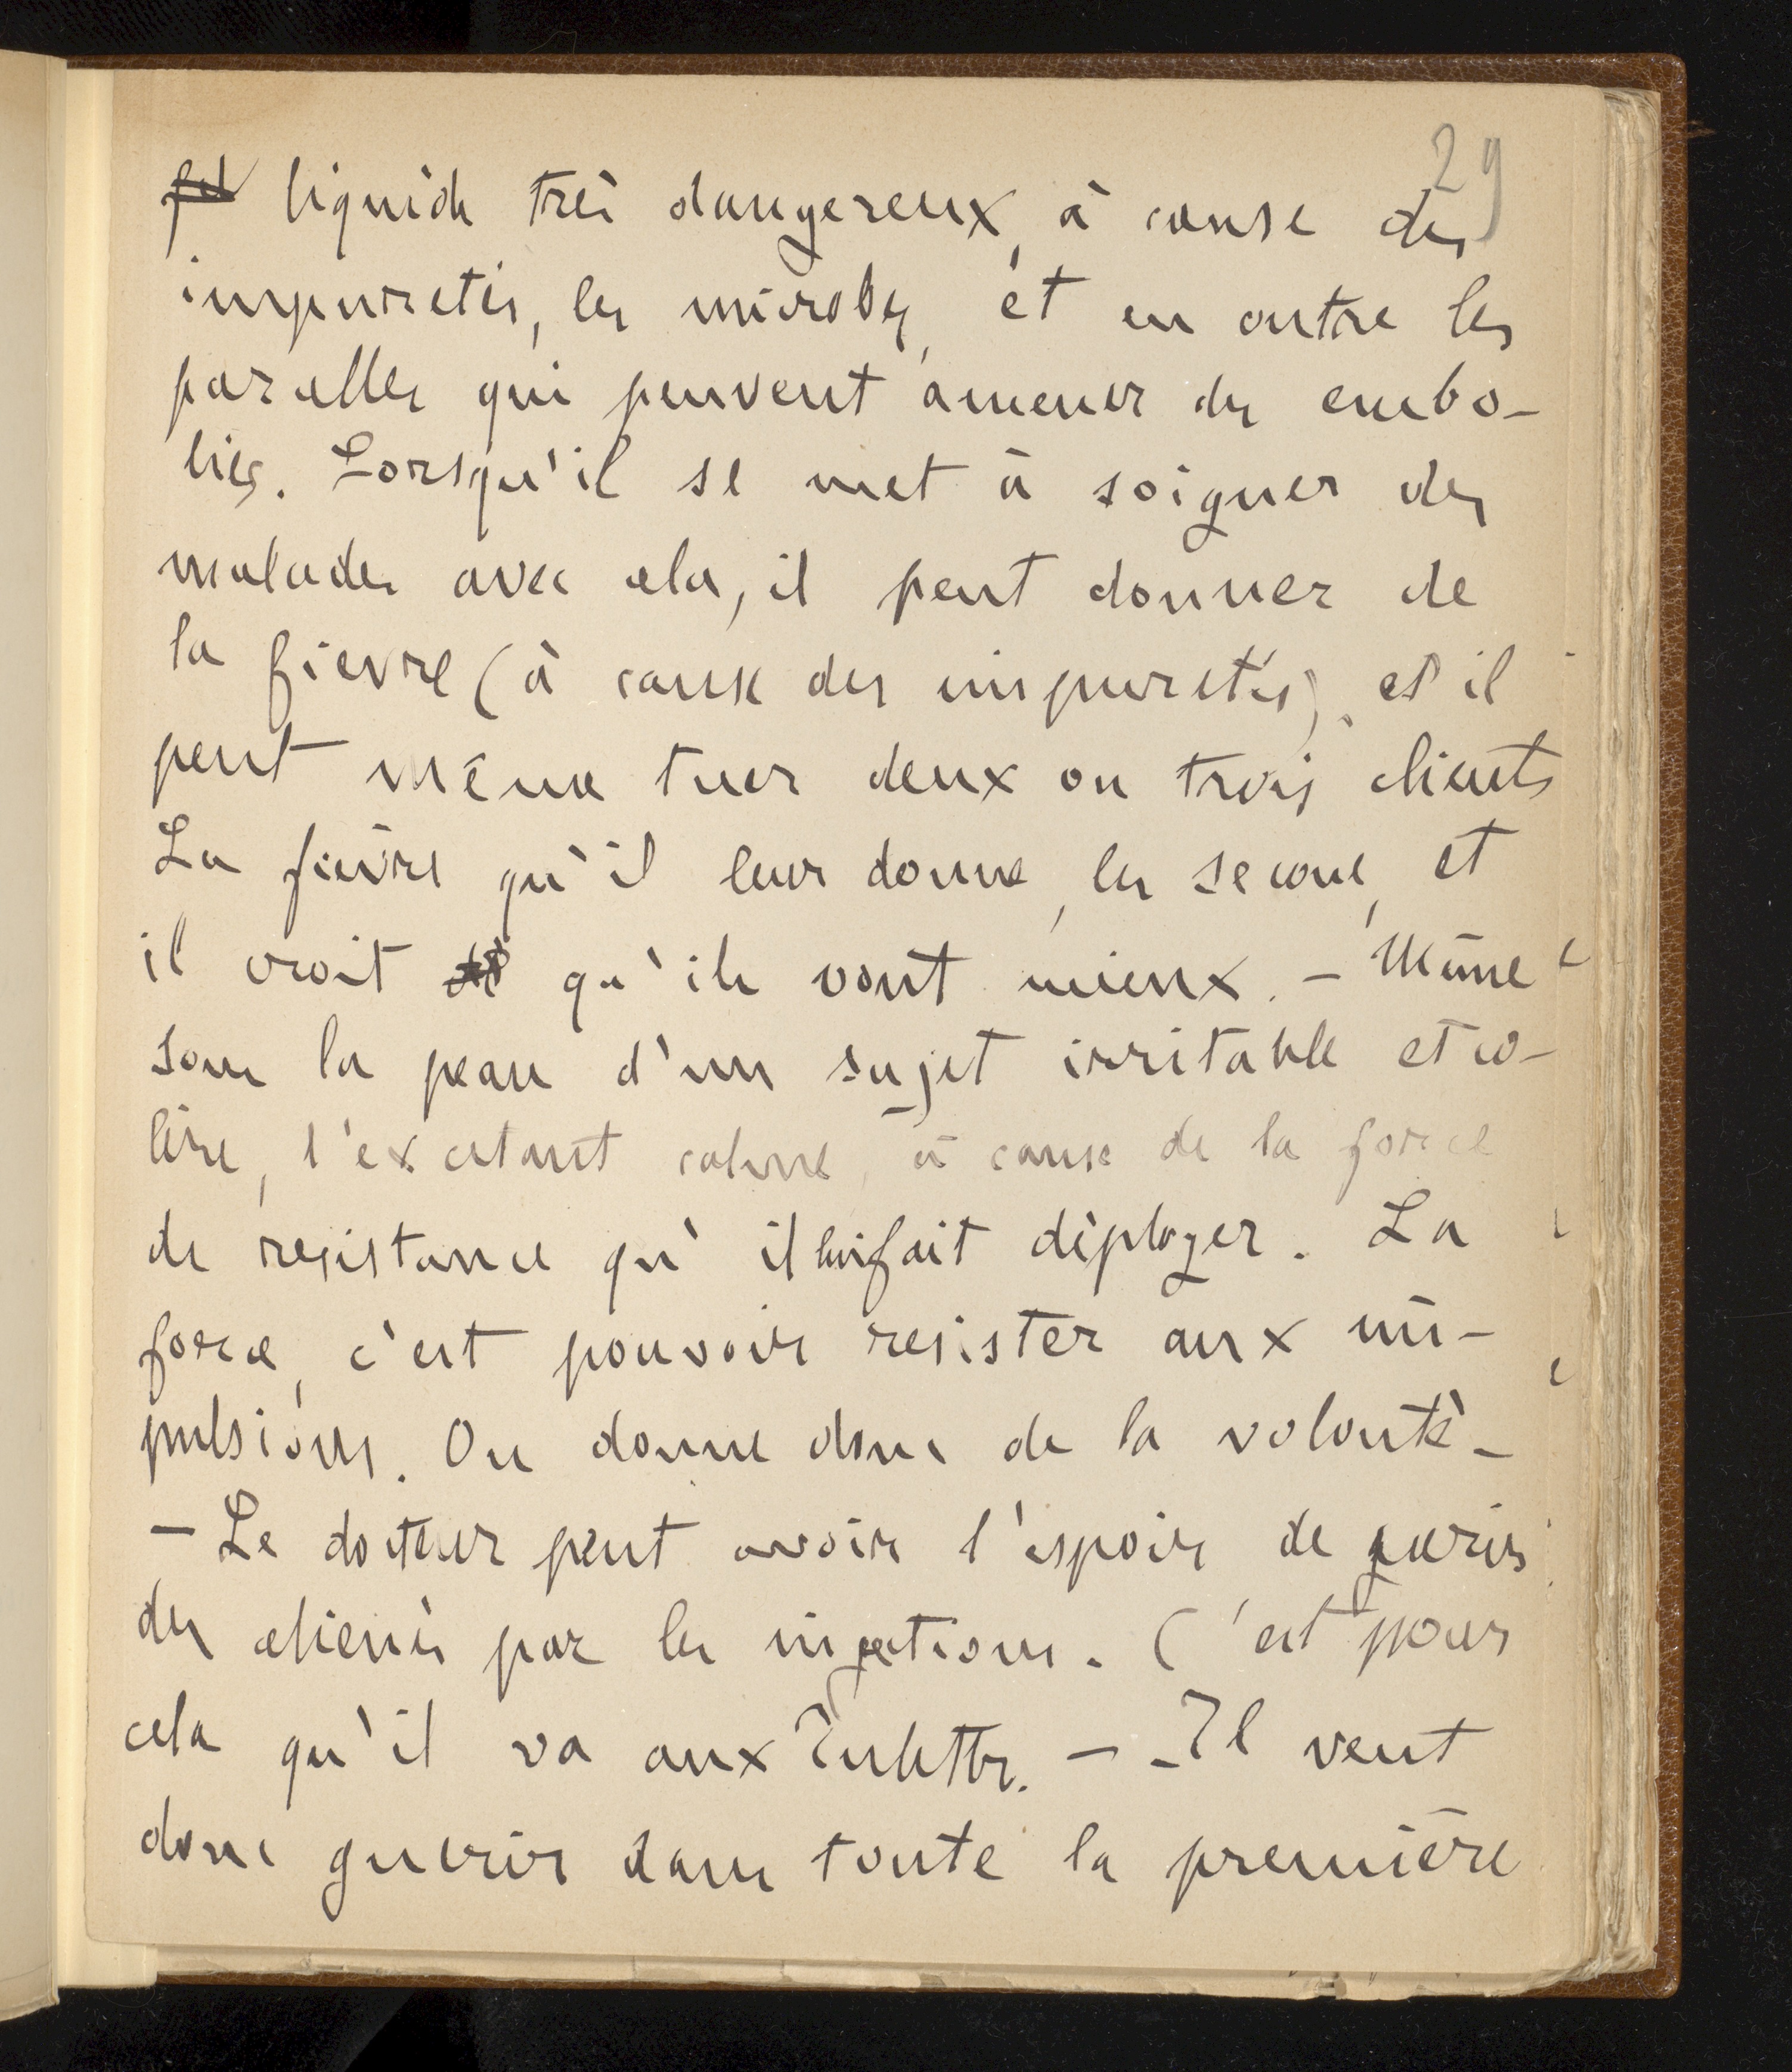 29
liquide très dangereux, à cause des
impuretés, les microbes, et en outre les
parcelles qui peuvent amener des embo-
lies. Lorsqu'il se met à soigner des
malades avec cela, il peut donner de
la fièvre (à cause des impuretés), et il
peut même tuer deux ou trois clients
La fièvre qu'il leur donne, les secoue, et
il croit qu'ils vont mieux. - Même
sous la peau d'un sujet irritable et co-
lère, l'excitant calme, à cause de la force
de resistance qu'il lui fait déployer. La
force, c'est pouvoir resister aux im-
pulsions. On donne donc de la volonté -
- Le docteur peut avoir l'espoir de guerir
des aliénés par les injections. C'est pour
cela qu'il va aux Tulettes. - - Il veut
donc guerir dans toute la première